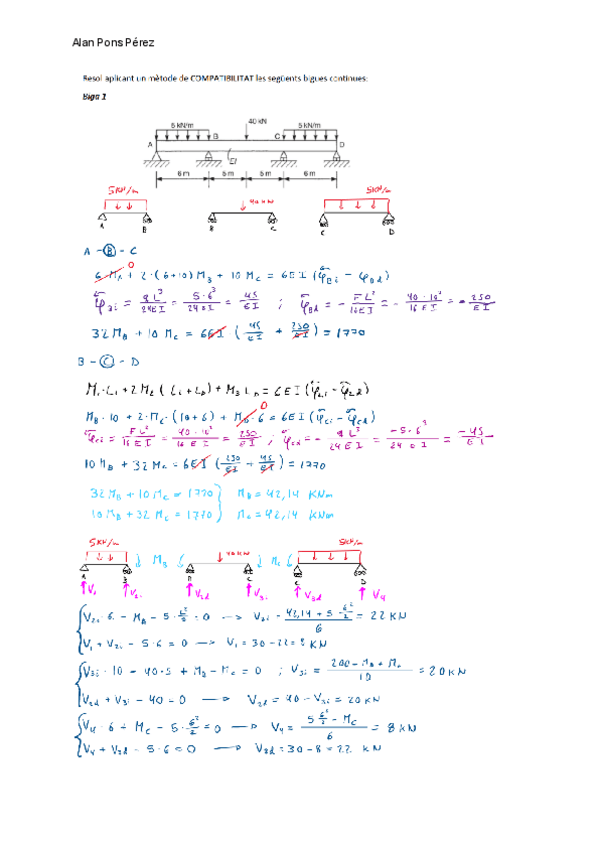 Alan Pons Pérez
Resol aplicant un mètode de COMPATIBILITAT les següents bigues continues:
Biga 1
5 kN/m 40 kN 5 kN/m
A B C D
EI
6 m 5 m 5 m 6 m
5KN/m 40 KN 5KN/m
A B B C C D
A - B - C
6 MA + 2·(6+10) MB + 10 MC = 6EI (φBi - φBd)
0
φBi = qL³/24EI = 5·6³/24EI = 45/EI ; φBd = - FL²/16EI = - 40·10²/16EI = - 250/EI
32MB + 10 MC = 6EI (45/EI + 250/EI) = 1770
B - C - D
M1·Li + 2M2 (Li + LD) + M3 LD = 6EI (φ2i - φ2d)
0
MB·10 + 2·MC·(10+6) + MD·6 = 6EI (φCi - φCd)
φCi = FL²/16EI = 40·10²/16EI = 250/EI ; φCd = - qL³/24EI = -5·6³/24EI = -45/EI
10MB + 32MC = 6EI (250/EI + 45/EI) = 1770
32MB + 10MC = 1770 MB = 42,14 KNm
10MB + 32MC = 1770 MC = 42,14 KNm
5KN/m 40KN 5KN/m
A B MB B C MC C D
V1 V2i V2d V3i V3d V4
V2i·6 - MB - 5·6²/2 = 0 → V2i = 42,14 + 5·6²/2 / 6 = 22 KN
V1 + V2i - 5·6 = 0 → V1 = 30 - 22 = 8 KN
V3i·10 - 40·5 + MB - MC = 0 ; V3i = 200 - MB + MC / 10 = 20KN
V2d + V3i - 40 = 0 → V2d = 40 - V3i = 20KN
V4·6 + MC - 5·6²/2 = 0 → V4 = 5·6²/2 - MC / 6 = 8 KN
V4 + V3d - 5·6 = 0 → V3d = 30 - 8 = 22 KN